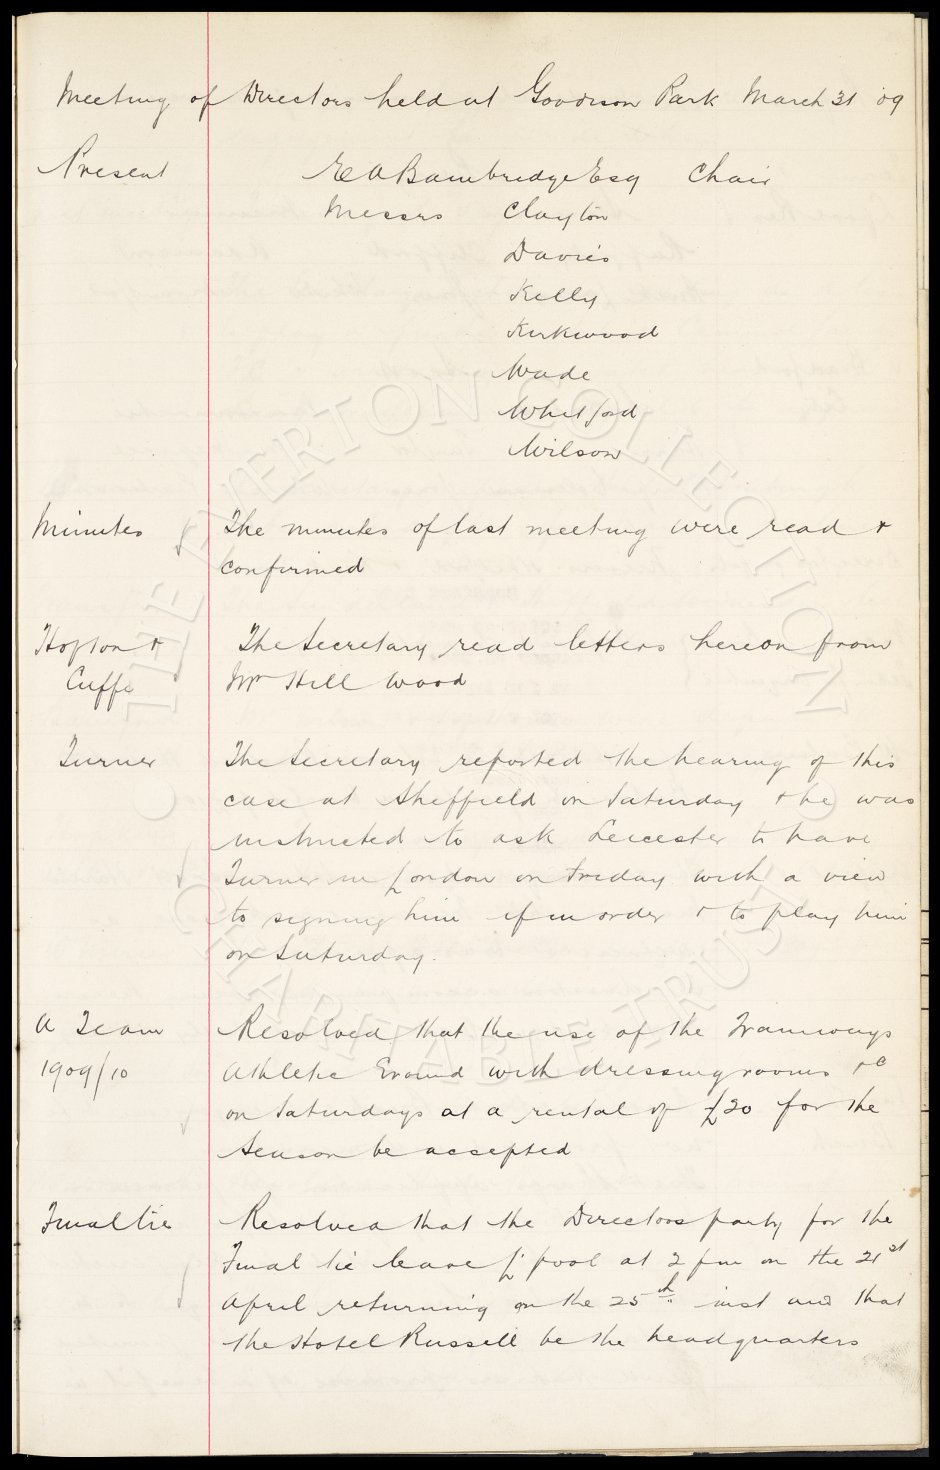 Meeting of Directors held at Goodison Park March 31 '09
Present E A Bainbridge Esq Chair
Messrs Clayton
Davies
Kelly
Kirkwood
Wade
Whitford
Wilson
Minutes The minutes of last meeting were read &
confirmed
Hopton & The Secretary read letters hereon from
Cuffe Mr Hill Wood
Turner The Secretary reported the hearing of this
case at Sheffield on Saturday & he was
instructed to ask Leicester to have
Turner in London on Friday with a view
to signing him if in order & to play him
on Saturday.
A Team Resolved that the use of the Tramways
1909/10 Athletic Ground with dressing rooms &c
on Saturdays at a rental of £20 for the
Season be accepted
Final tie Resolved that the Directors party for the
Final tie leave L'pool at 2 pm on the 21st
April returning on the 25th inst and that
the Hotel Russell be the headquarters
THE EVERTON COLLECTION
CHARITABLE TRUST